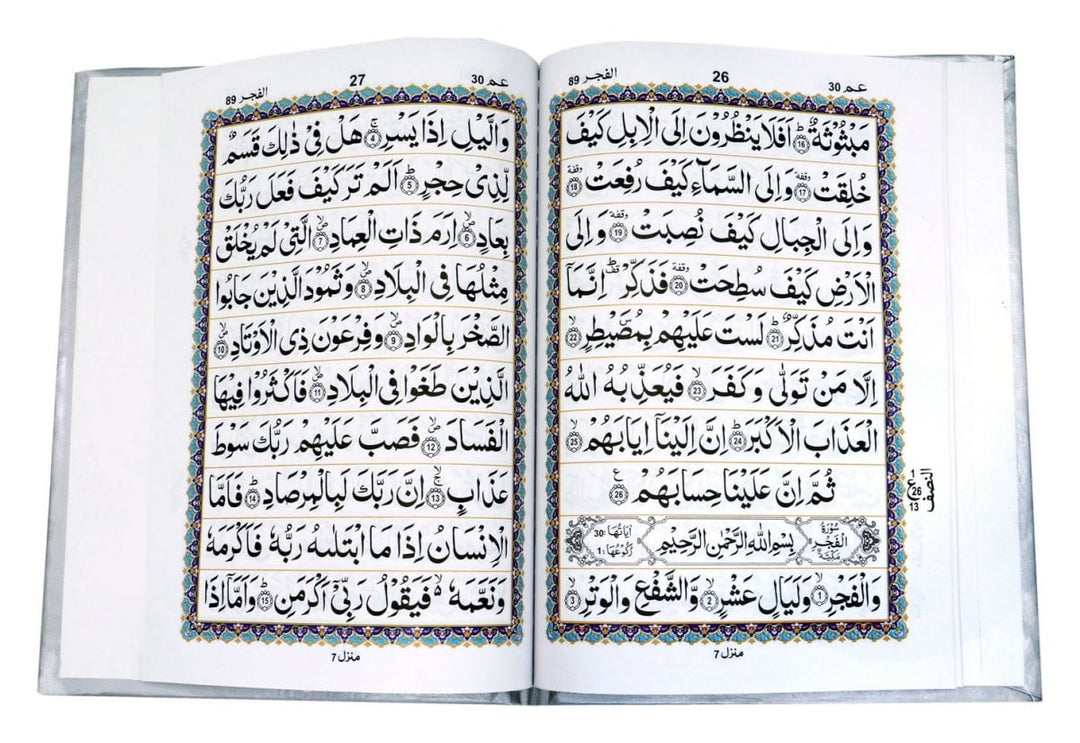 الفجر 89
26
عم 30
مَبْثُوْثَةٌ ؕ16 اَفَلَا يَنْظُرُوْنَ اِلَى الْاِبِلِ كَيْفَ
خُلِقَتْ ٝوقفة17 وَاِلَى السَّمَآءِ كَيْفَ رُفِعَتْ ٝوقفة18
وَاِلَى الْجِبَالِ كَيْفَ نُصِبَتْ ٝوقفة19 وَاِلَى
الْاَرْضِ كَيْفَ سُطِحَتْ ٝوقفة20 فَذَكِّرْ ؕقف اِنَّمَاۤ
اَنْتَ مُذَكِّرٌ ؕ21 لَسْتَ عَلَيْهِمْ بِمُصَۜيْطِرٍ ۙ22
اِلَّا مَنْ تَوَلّٰى وَكَفَرَ ۙ23 فَيُعَذِّبُهُ اللّٰهُ
الْعَذَابَ الْاَكْبَرَ ؕ24 اِنَّ اِلَيْنَاۤ اِيَابَهُمْ ۙ25
ثُمَّ اِنَّ عَلَيْنَا حِسَابَهُمْ ع26
النصف
1
ع 26
13
سُوْرَةُ الْفَجْرِ مَكِّيَّةٌ
بِسْمِ اللّٰهِ الرَّحْمٰنِ الرَّحِيْمِ
اٰيَاتُهَا: 30
رُكُوْعُهَا: 1
وَالْفَجْرِ ۙ1 وَلَيَالٍ عَشْرٍ ۙ2 وَّالشَّفْعِ وَالْوَتْرِ ۙ3
منزل 7
الفجر 89
27
عم 30
وَالَّيْلِ اِذَا يَسْرِ ۚ4 هَلْ فِيْ ذٰلِكَ قَسَمٌ
لِّذِيْ حِجْرٍ ؕ5 اَلَمْ تَرَ كَيْفَ فَعَلَ رَبُّكَ
بِعَادٍ ۙص6 اِرَمَ ذَاتِ الْعِمَادِ ۙص7 الَّتِيْ لَمْ يُخْلَقْ
مِثْلُهَا فِي الْبِلَادِ ۙص8 وَثَمُوْدَ الَّذِيْنَ جَابُوا
الصَّخْرَ بِالْوَادِ ۙص9 وَفِرْعَوْنَ ذِي الْاَوْتَادِ ۙص10
الَّذِيْنَ طَغَوْا فِي الْبِلَادِ ۙص11 فَاَكْثَرُوْا فِيْهَا
الْفَسَادَ ۙص12 فَصَبَّ عَلَيْهِمْ رَبُّكَ سَوْطَ
عَذَابٍ ۚۙ13 اِنَّ رَبَّكَ لَبِالْمِرْصَادِ ؕ14 فَاَمَّا
الْاِنْسَانُ اِذَا مَا ابْتَلٰىهُ رَبُّهٗ فَاَكْرَمَهٗ
وَنَعَّمَهٗ ۙ۬ فَيَقُوْلُ رَبِّيْۤ اَكْرَمَنِ ؕ15 وَاَمَّاۤ اِذَا
منزل 7